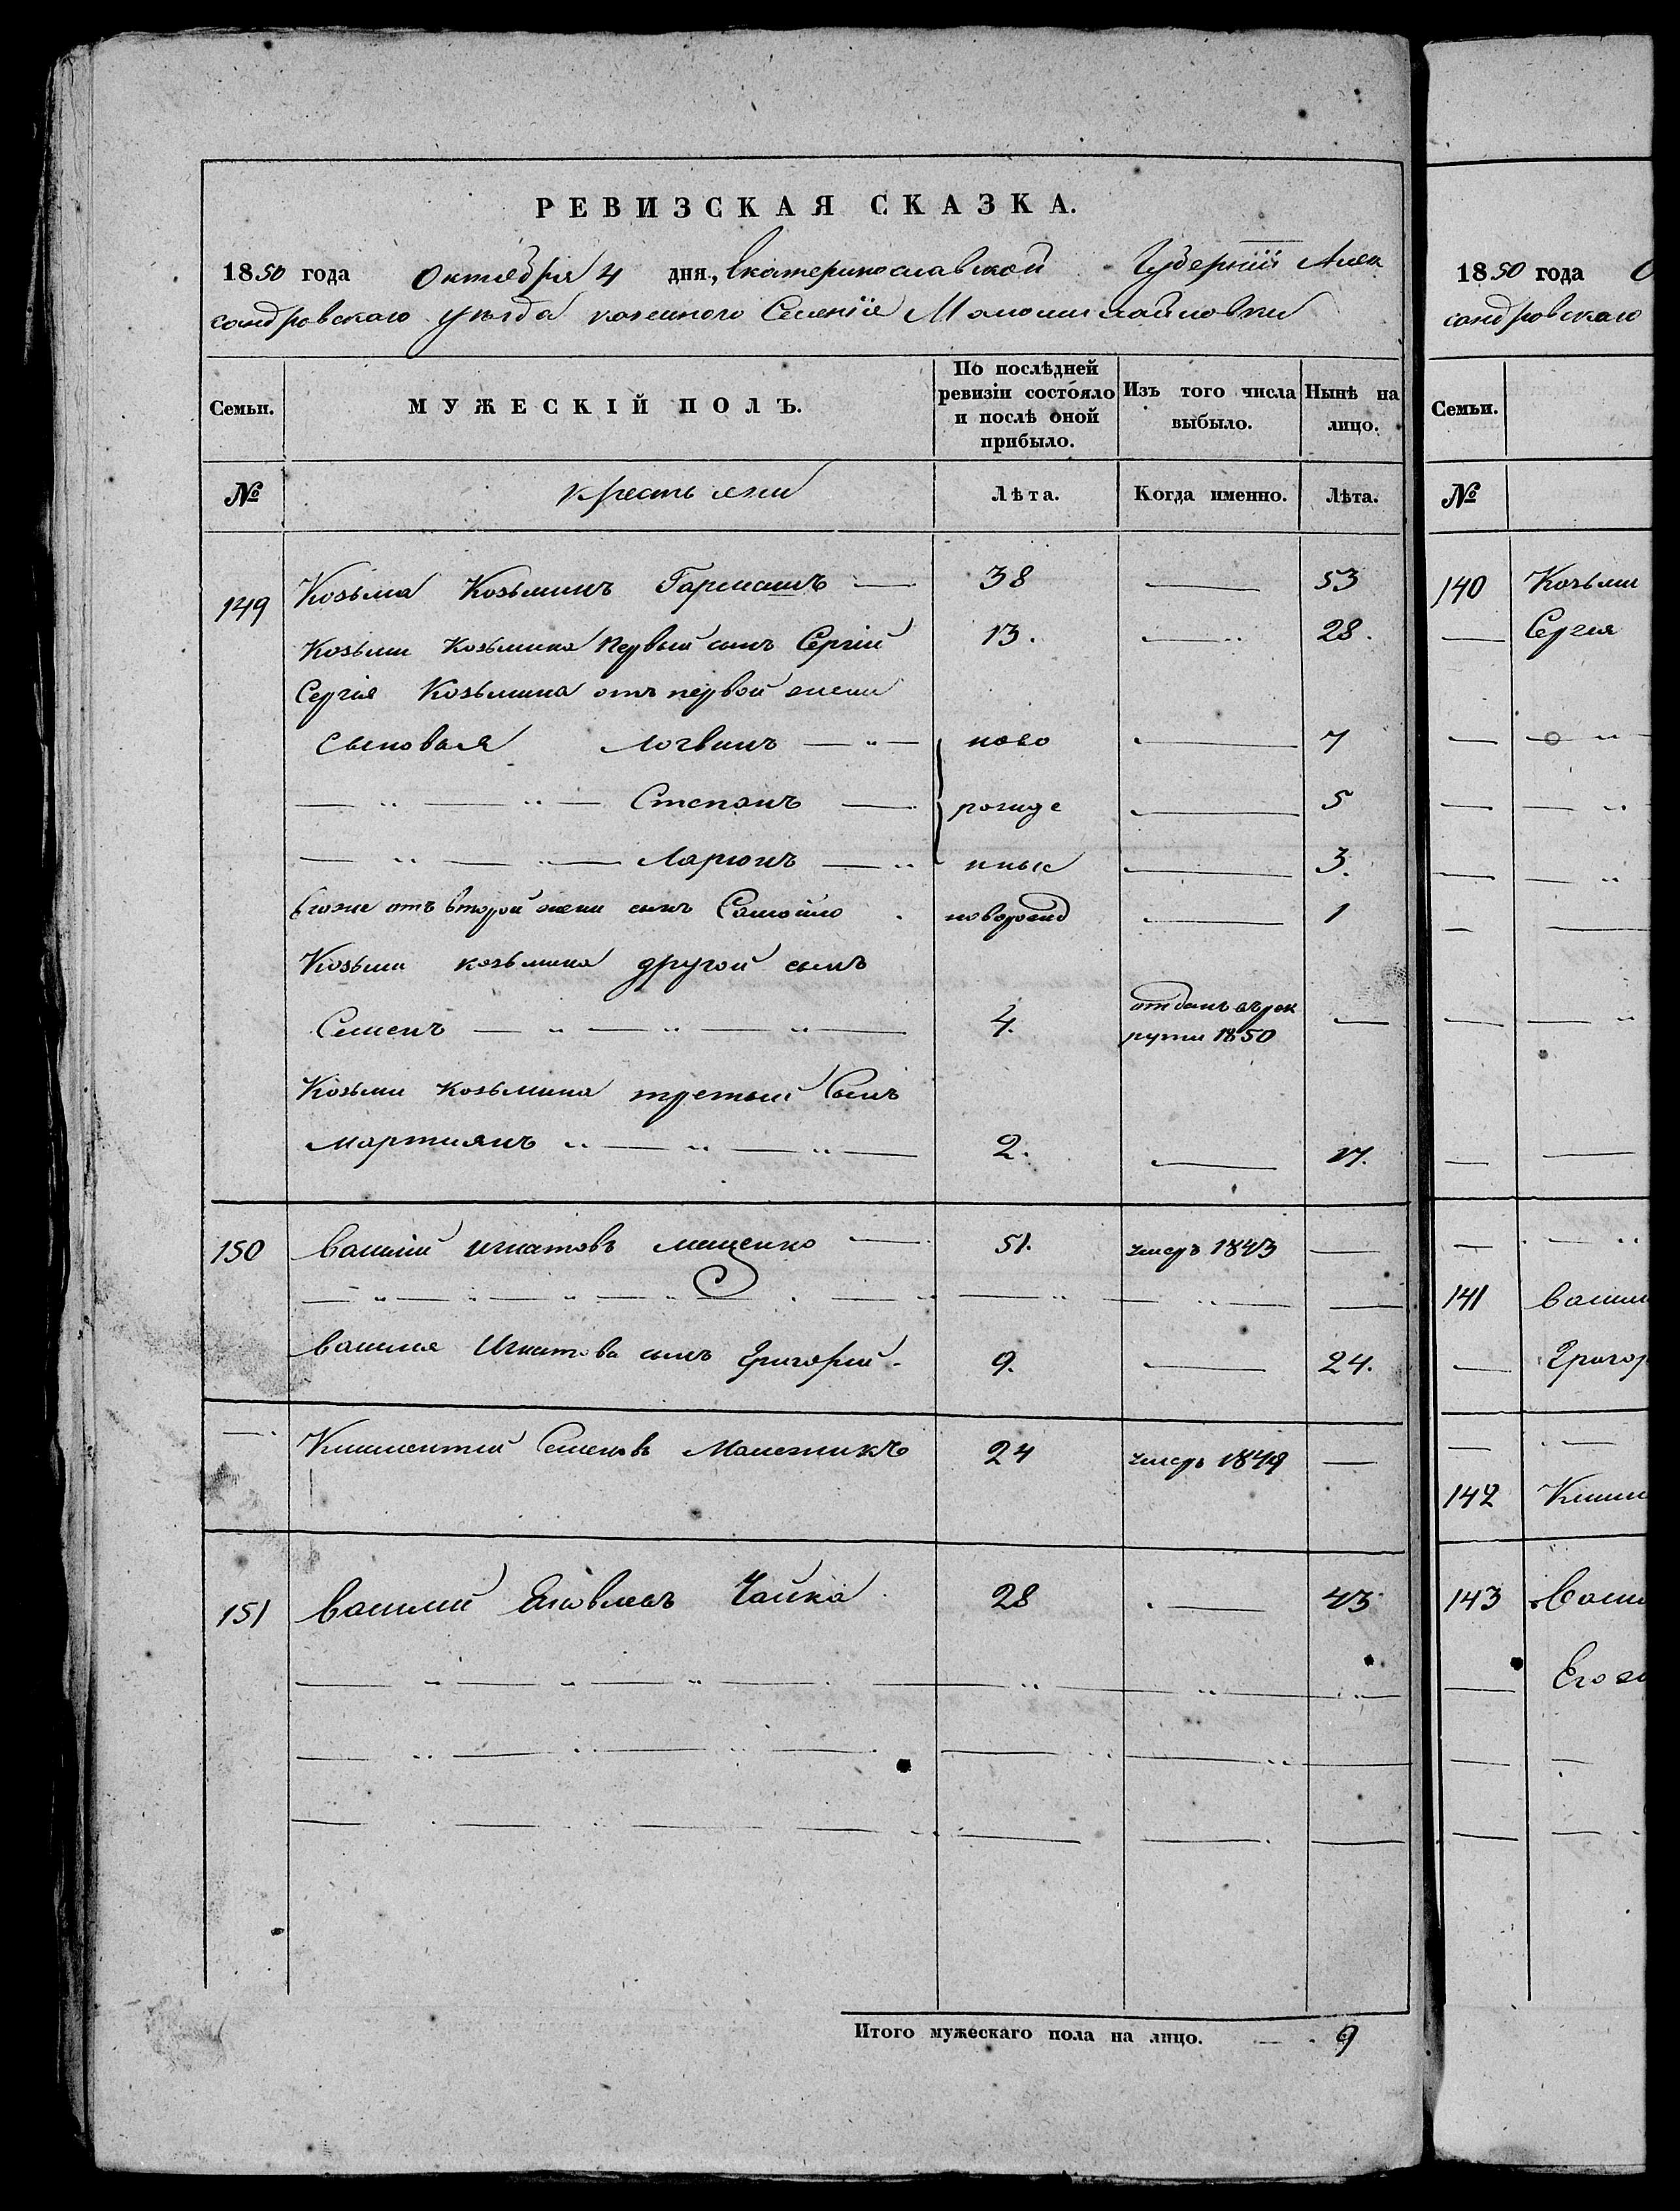 РЕВИЗСКАЯ СКАЗКА.
1850 года Октября 4 дня, Екатеринославской Губерніи Алек
сандровскаго уѣзда казенного Селенія Маломихайловки
Семьи. МУЖЕСКІЙ ПОЛЪ. По послѣдней ревизіи состояло и послѣ оной прибыло. Изъ того числа выбыло. Нынѣ на лицо.
№ крестьяни Лѣта. Когда именно. Лѣта.
149 Козьма Козьминъ Гармашъ — 38 — 53
Козьми Козьмина первый сынъ Сергій 13. — 28.
Сергія Козьмина отъ первой жени
сыновья Логвинъ — ново — 7
Степанъ — рожде — 5
Ларионъ — нные — 3.
Егоже отъ второй жени сынъ Самойло новорожд — 1
Козьми козьмина другой сынъ
Семенъ — 4. отданъ въ рек
рути 1850 —
Козьми Козьмина третьий Сынъ
Мартиянъ — 2. — 17.
150 Василій Игнатовъ Мищенко — 51. умеръ 1843 —
Василия Игнатова сынъ Григорий - 9. — 24.
— Климентий Семеновъ Малежикъ 24 умеръ 1849 —
151 Василий Яковлевъ Чайка 28 — 43
Итого мужескаго пола на лицо. — 9
1850 года О
сандровскаго
Семьи.
№
140 Козьми
— Сергия
141 Васили
— Григор
142 Клим
143 Васи
Его ж